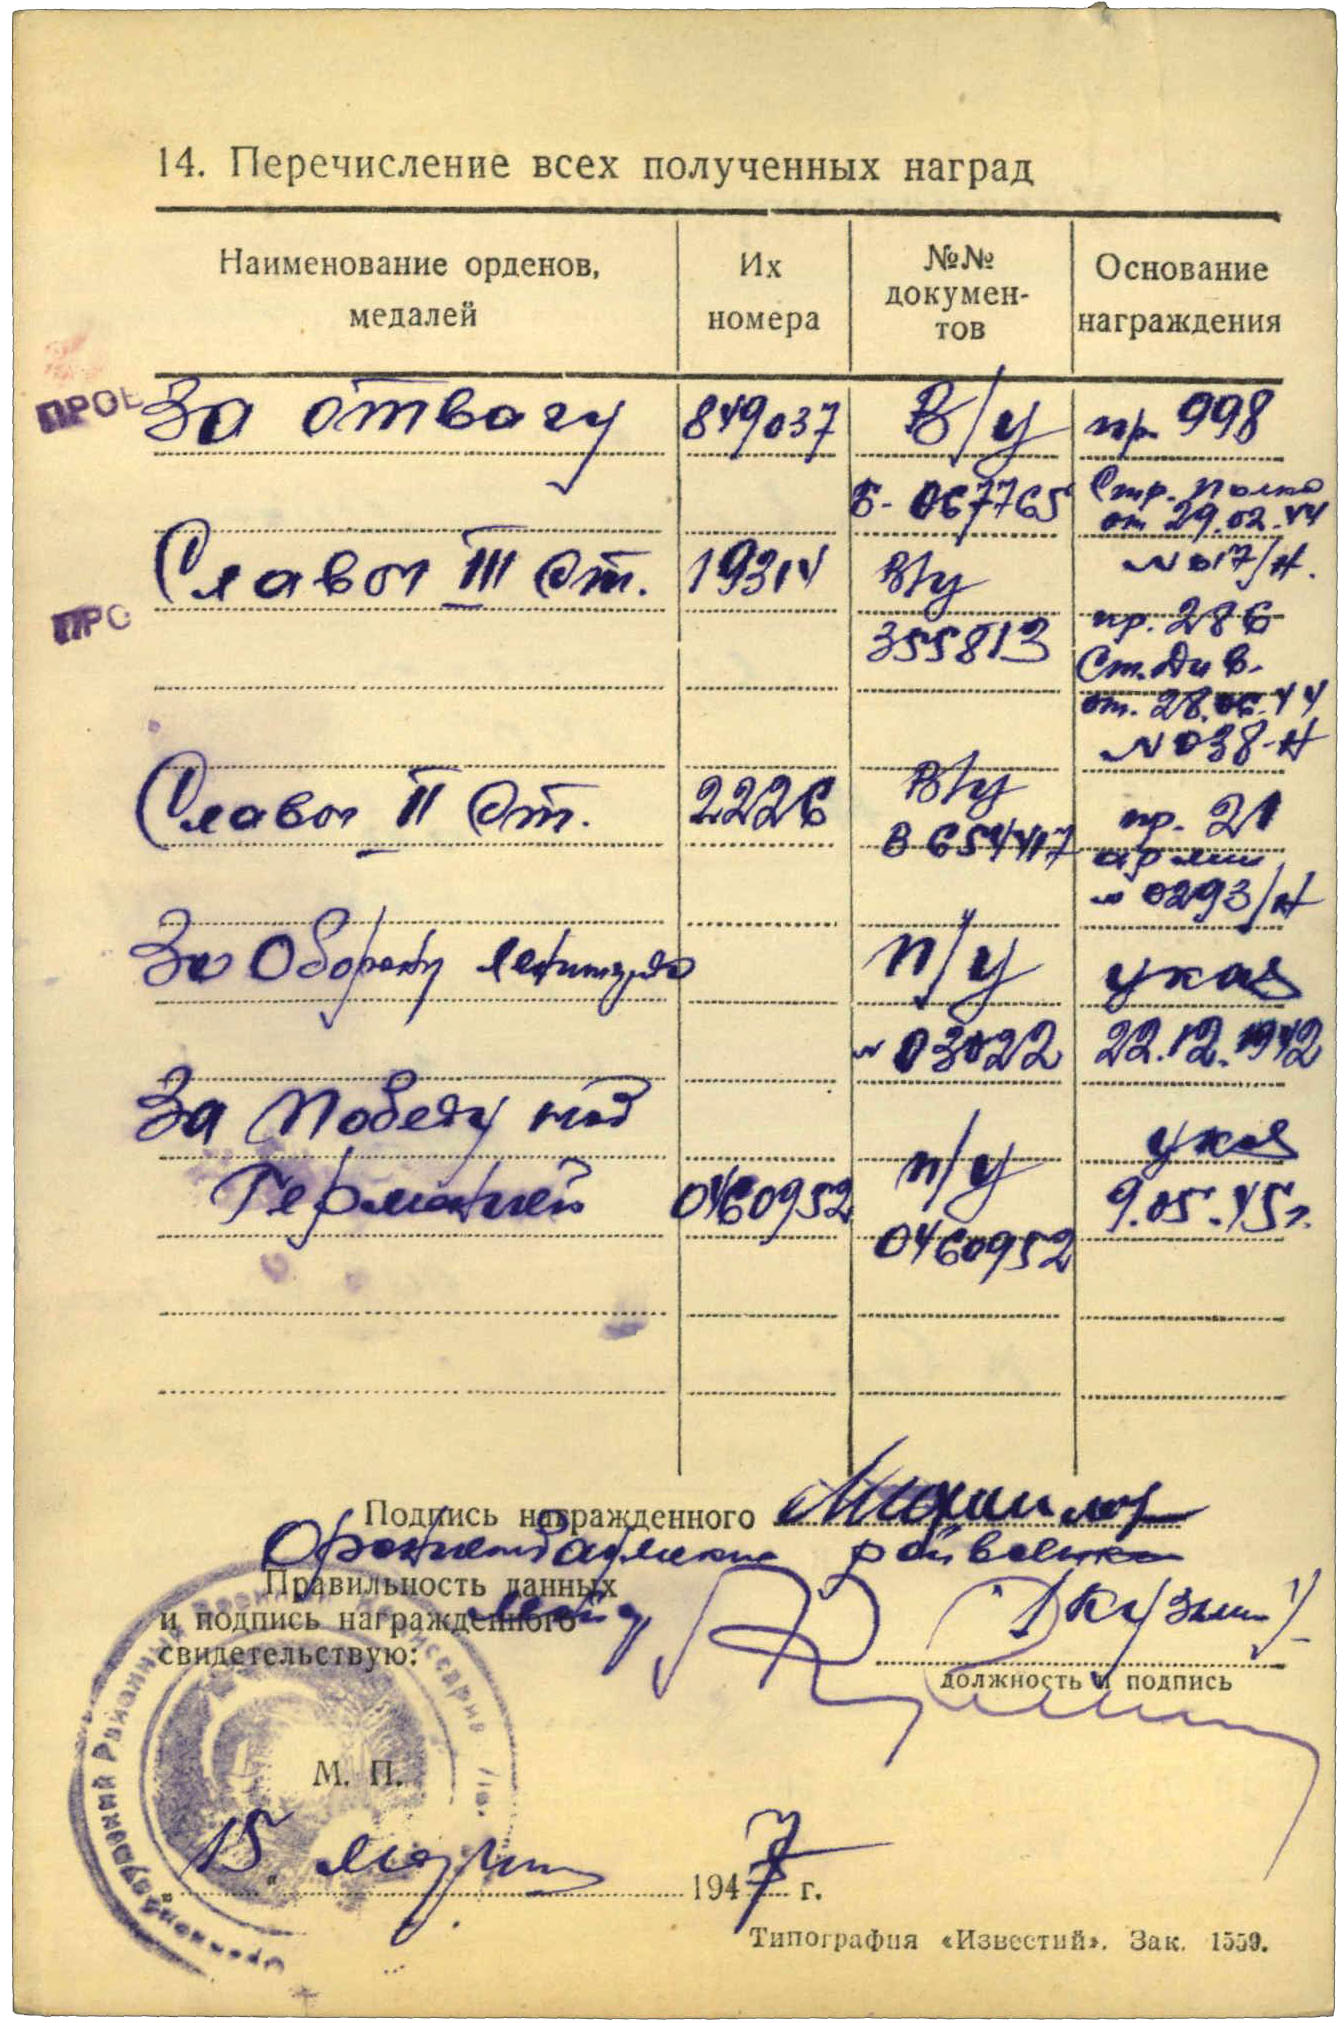 14. Перечисление всех полученных наград
Наименование орденов, медалей
Их номера
№№ документов
Основание награждения
ПРОВ
За отвагу 849037 В/у пр. 998
Б-067765 Стр. полка
от 29.02.44
Славы III ст. 19314 В/у № 017/н.
ПРО
пр. 286
355813 Ст. див.
от. 28.06.44
№ 038-н
Славы II ст. 2226 В/у пр. 21
В 654417 армии
№ 0293/н
За Оборону Ленинграда п/у указ
№ 03022 22.12.1942
За Победу над указ
Германией 0460952 п/у 9.05.45г.
0460952
Подпись награжденного Михайлов
Ораниенбаумский райвоенком
Правильность данных
и подпись награжденного
свидетельствую:
/Кузмин/
должность и подпись
М. П.
„15" марта 1947 г.
Типография «Известий». Зак. 1559.